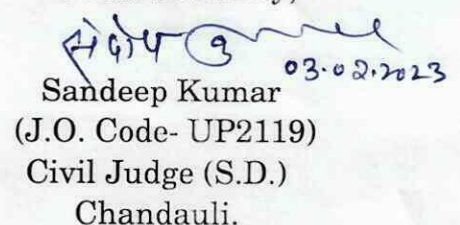 संदीप कु
03.02.2023
Sandeep Kumar
(J.O. Code- UP2119)
Civil Judge (S.D.)
Chandauli.